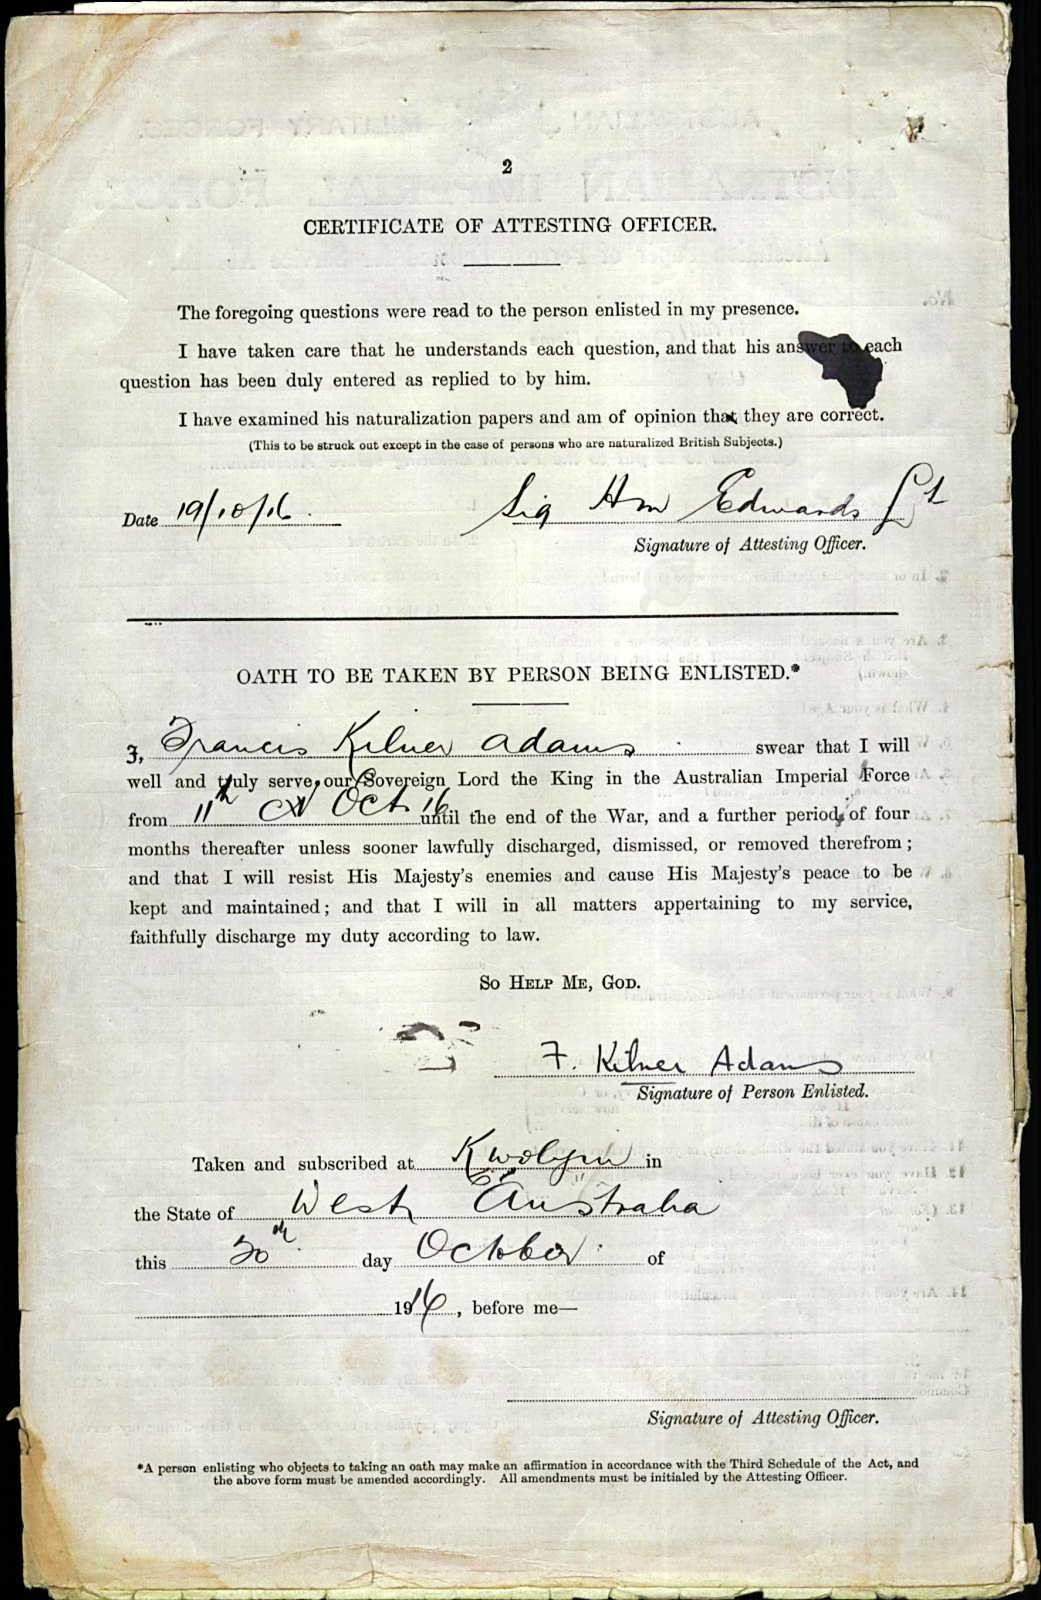 2
CERTIFICATE OF ATTESTING OFFICER.
The foregoing questions were read to the person enlisted in my presence.
I have taken care that he understands each question, and that his answer to each
question has been duly entered as replied to by him.
I have examined his naturalization papers and am of opinion that they are correct.
(This to be struck out except in the case of persons who are naturalized British Subjects.)
Date 19/10/16. Sig Hm Edwards Lt
Signature of Attesting Officer.
OATH TO BE TAKEN BY PERSON BEING ENLISTED.*
I, Francis Kilner Adams swear that I will
well and truly serve our Sovereign Lord the King in the Australian Imperial Force
from 11th Oct 16 until the end of the War, and a further period of four
months thereafter unless sooner lawfully discharged, dismissed, or removed therefrom;
and that I will resist His Majesty's enemies and cause His Majesty's peace to be
kept and maintained; and that I will in all matters appertaining to my service,
faithfully discharge my duty according to law.
So Help Me, God.
F. Kilner Adams
Signature of Person Enlisted.
Taken and subscribed at Kwolyin in
the State of West Australia
this day October of
1916, before me—
Signature of Attesting Officer.
*A person enlisting who objects to taking an oath may make an affirmation in accordance with the Third Schedule of the Act, and
the above form must be amended accordingly. All amendments must be initialed by the Attesting Officer.